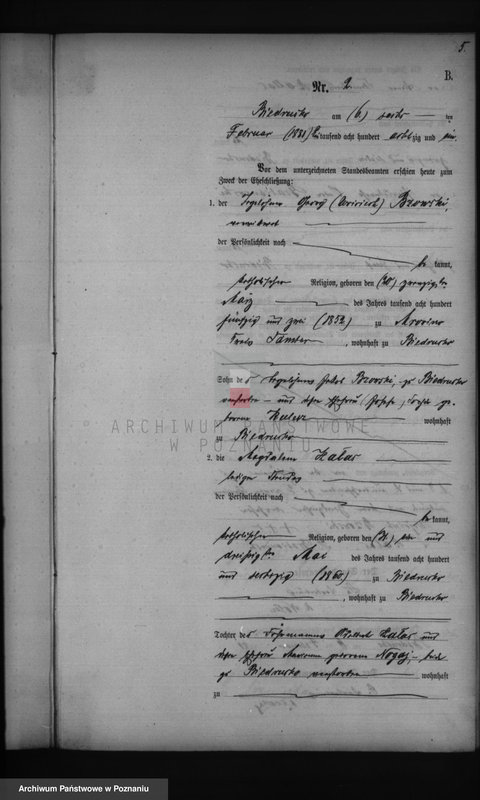 5.
B.
Nr. 2
Biedrusko am (6.) sechsten
Februar (1881) tausend acht hundert achtzig und ein.
Vor dem unterzeichneten Standesbeamten erschien heute zum
Zweck der Eheschließung:
1. der Tagelöhner Georg Brzowski,
der Persönlichkeit nach
be kannt,
katholischer Religion, geboren den (20) zwanzigsten
März des Jahres tausend acht hundert
fünfzig und zwei (1852) zu
Kreis Samter, wohnhaft zu Biedrusko
Sohn des Tagelöhners Jakob Brzowski, zu Biedrusko
verstorben und
wohnhaft
ARCHIWUM PAŃSTWOWE
W POZNANIU
zu Biedrusko
2. die Magdalena Halas
ledigen Standes
der Persönlichkeit nach
be kannt,
katholischer Religion, geboren den (31.) ein und
dreißigsten Mai des Jahres tausend acht hundert
und sechszig (1860) zu Biedrusko
, wohnhaft zu Biedrusko
Tochter des Halas und
geborenen Nogaj, beide
zu Biedrusko verstorben wohnhaft
zu
Archiwum Państwowe w Poznaniu